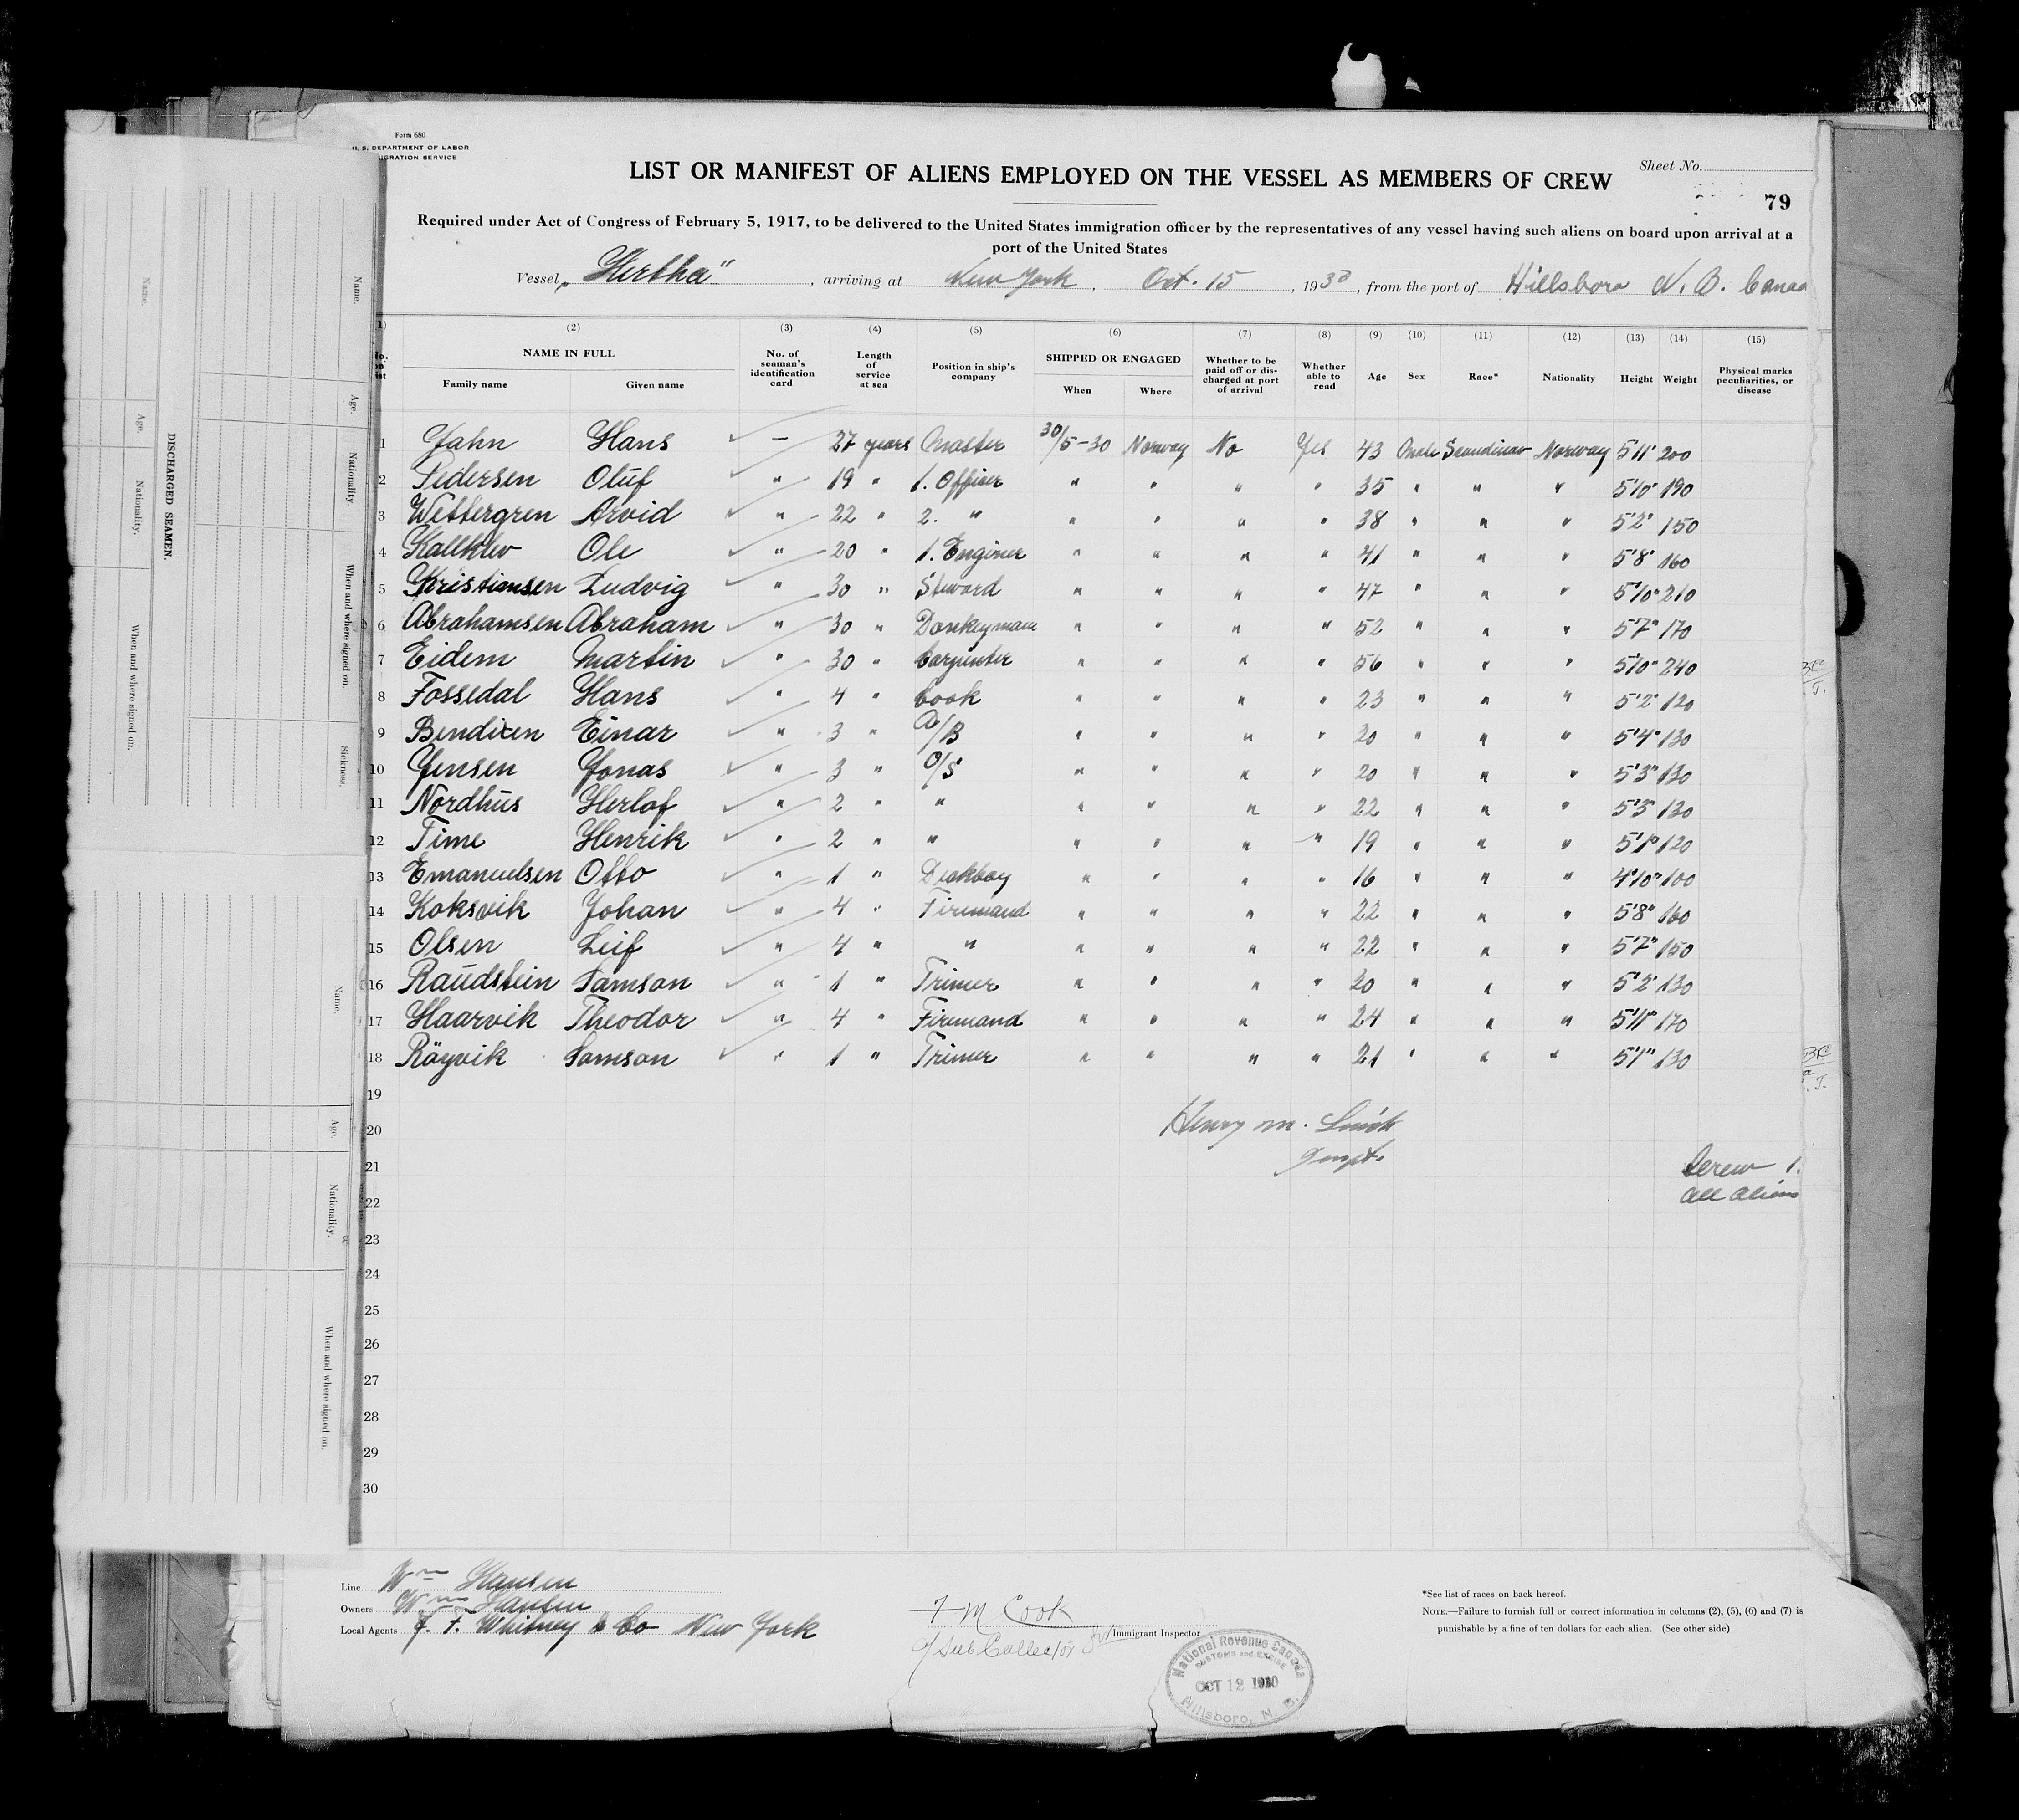 Form 680
U. S. DEPARTMENT OF LABOR
IGRATION SERVICE
LIST OR MANIFEST OF ALIENS EMPLOYED ON THE VESSEL AS MEMBERS OF CREW
Sheet No.
79
Required under Act of Congress of February 5, 1917, to be delivered to the United States immigration officer by the representatives of any vessel having such aliens on board upon arrival at a
port of the United States
Vessel „Hertha“, arriving at New York, Oct. 15, 1930, from the port of Hillsboro N. B. Canad
1) (2) (3) (4) (5) (6) (7) (8) (9) (10) (11) (12) (13) (14) (15)
No. on list NAME IN FULL Family name Given name No. of seaman's identification card Length of service at sea Position in ship's company SHIPPED OR ENGAGED When Where Whether to be paid off or discharged at port of arrival Whether able to read Age Sex Race* Nationality Height Weight Physical marks peculiarities, or disease
1 Jahn Hans — 27 years Master 30/5-30 Norway No Yes 43 Male Scandinav Norway 5'11" 200
2 Pedersen Oluf " 19 " 1. Officer " " " " 35 " " " 5'10" 190
3 Wettergren Arvid " 22 " 2. " " " " " 38 " " " 5'2" 150
4 Kallklev Ole " 20 " 1. Enginer " " " " 41 " " " 5'8" 160
5 Kristiansen Ludvig " 30 " Steward " " " " 47 " " " 5'10" 210
6 Abrahamsen Abraham " 30 " Donkeyman " " " " 52 " " " 5'7" 170
7 Eidem Martin " 30 " Carpenter " " " " 56 " " " 5'10" 240
8 Fossedal Hans " 4 " Cook " " " " 23 " " " 5'2" 120
9 Bendixen Einar " 3 " A/B " " " " 20 " " " 5'4" 130
10 Jensen Jonas " 3 " O/S " " " " 20 " " " 5'3" 130
11 Nordhus Herlof " 2 " " " " " " 22 " " " 5'3" 130
12 Time Henrik " 2 " " " " " " 19 " " " 5'1" 120
13 Emanuelsen Otto " 1 " Deckboy " " " " 16 " " " 4'10" 100
14 Koksvik Johan " 4 " Firemand " " " " 22 " " " 5'8" 160
15 Olsen Leif " 4 " " " " " " 22 " " " 5'7" 150
16 Raudstein Samson " 1 " Trimer " " " " 20 " " " 5'2" 130
17 Haarvik Theodor " 4 " Firemand " " " " 24 " " " 5'11" 170
18 Röyvik Samson " 1 " Trimer " " " " 21 " " " 5'1" 130
19
20 Henry M.
21 Inspt.
Screw 1.
22 all aliens
23
24
25
26
27
28
29
30
Line Wm Hansen
Owners Wm Hansen
Local Agents J. F. Whitney & Co New York
F M Cook
Immigrant Inspector
Sub Collector
National Revenue Canada
CUSTOMS and EXCISE
OCT 12 1930
Hillsboro, N. B.
*See list of races on back hereof.
NOTE.—Failure to furnish full or correct information in columns (2), (5), (6) and (7) is
punishable by a fine of ten dollars for each alien. (See other side)
DISCHARGED SEAMEN.
Name.
Age.
Nationality.
When and where signed on.
Name.
Age.
Nationality.
When and where signed on.
Sickness.
Name.
Age.
Nationality.
When and where signed on.